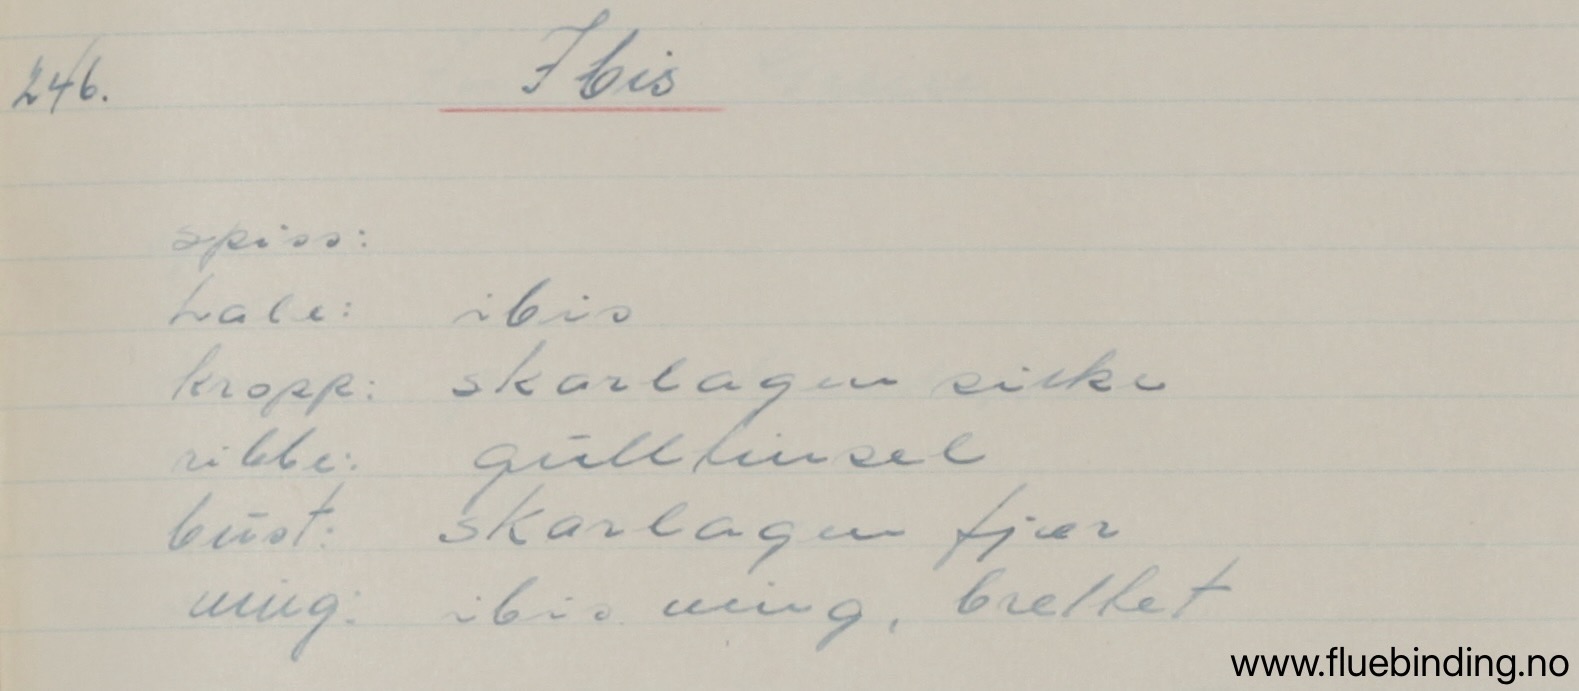 246. Ibis
spiss:
hale: ibis
kropp: skarlagen silke
ribbe: gulltinsel
bust: skarlagen fjær
ving: ibis ving, brettet
www.fluebinding.no